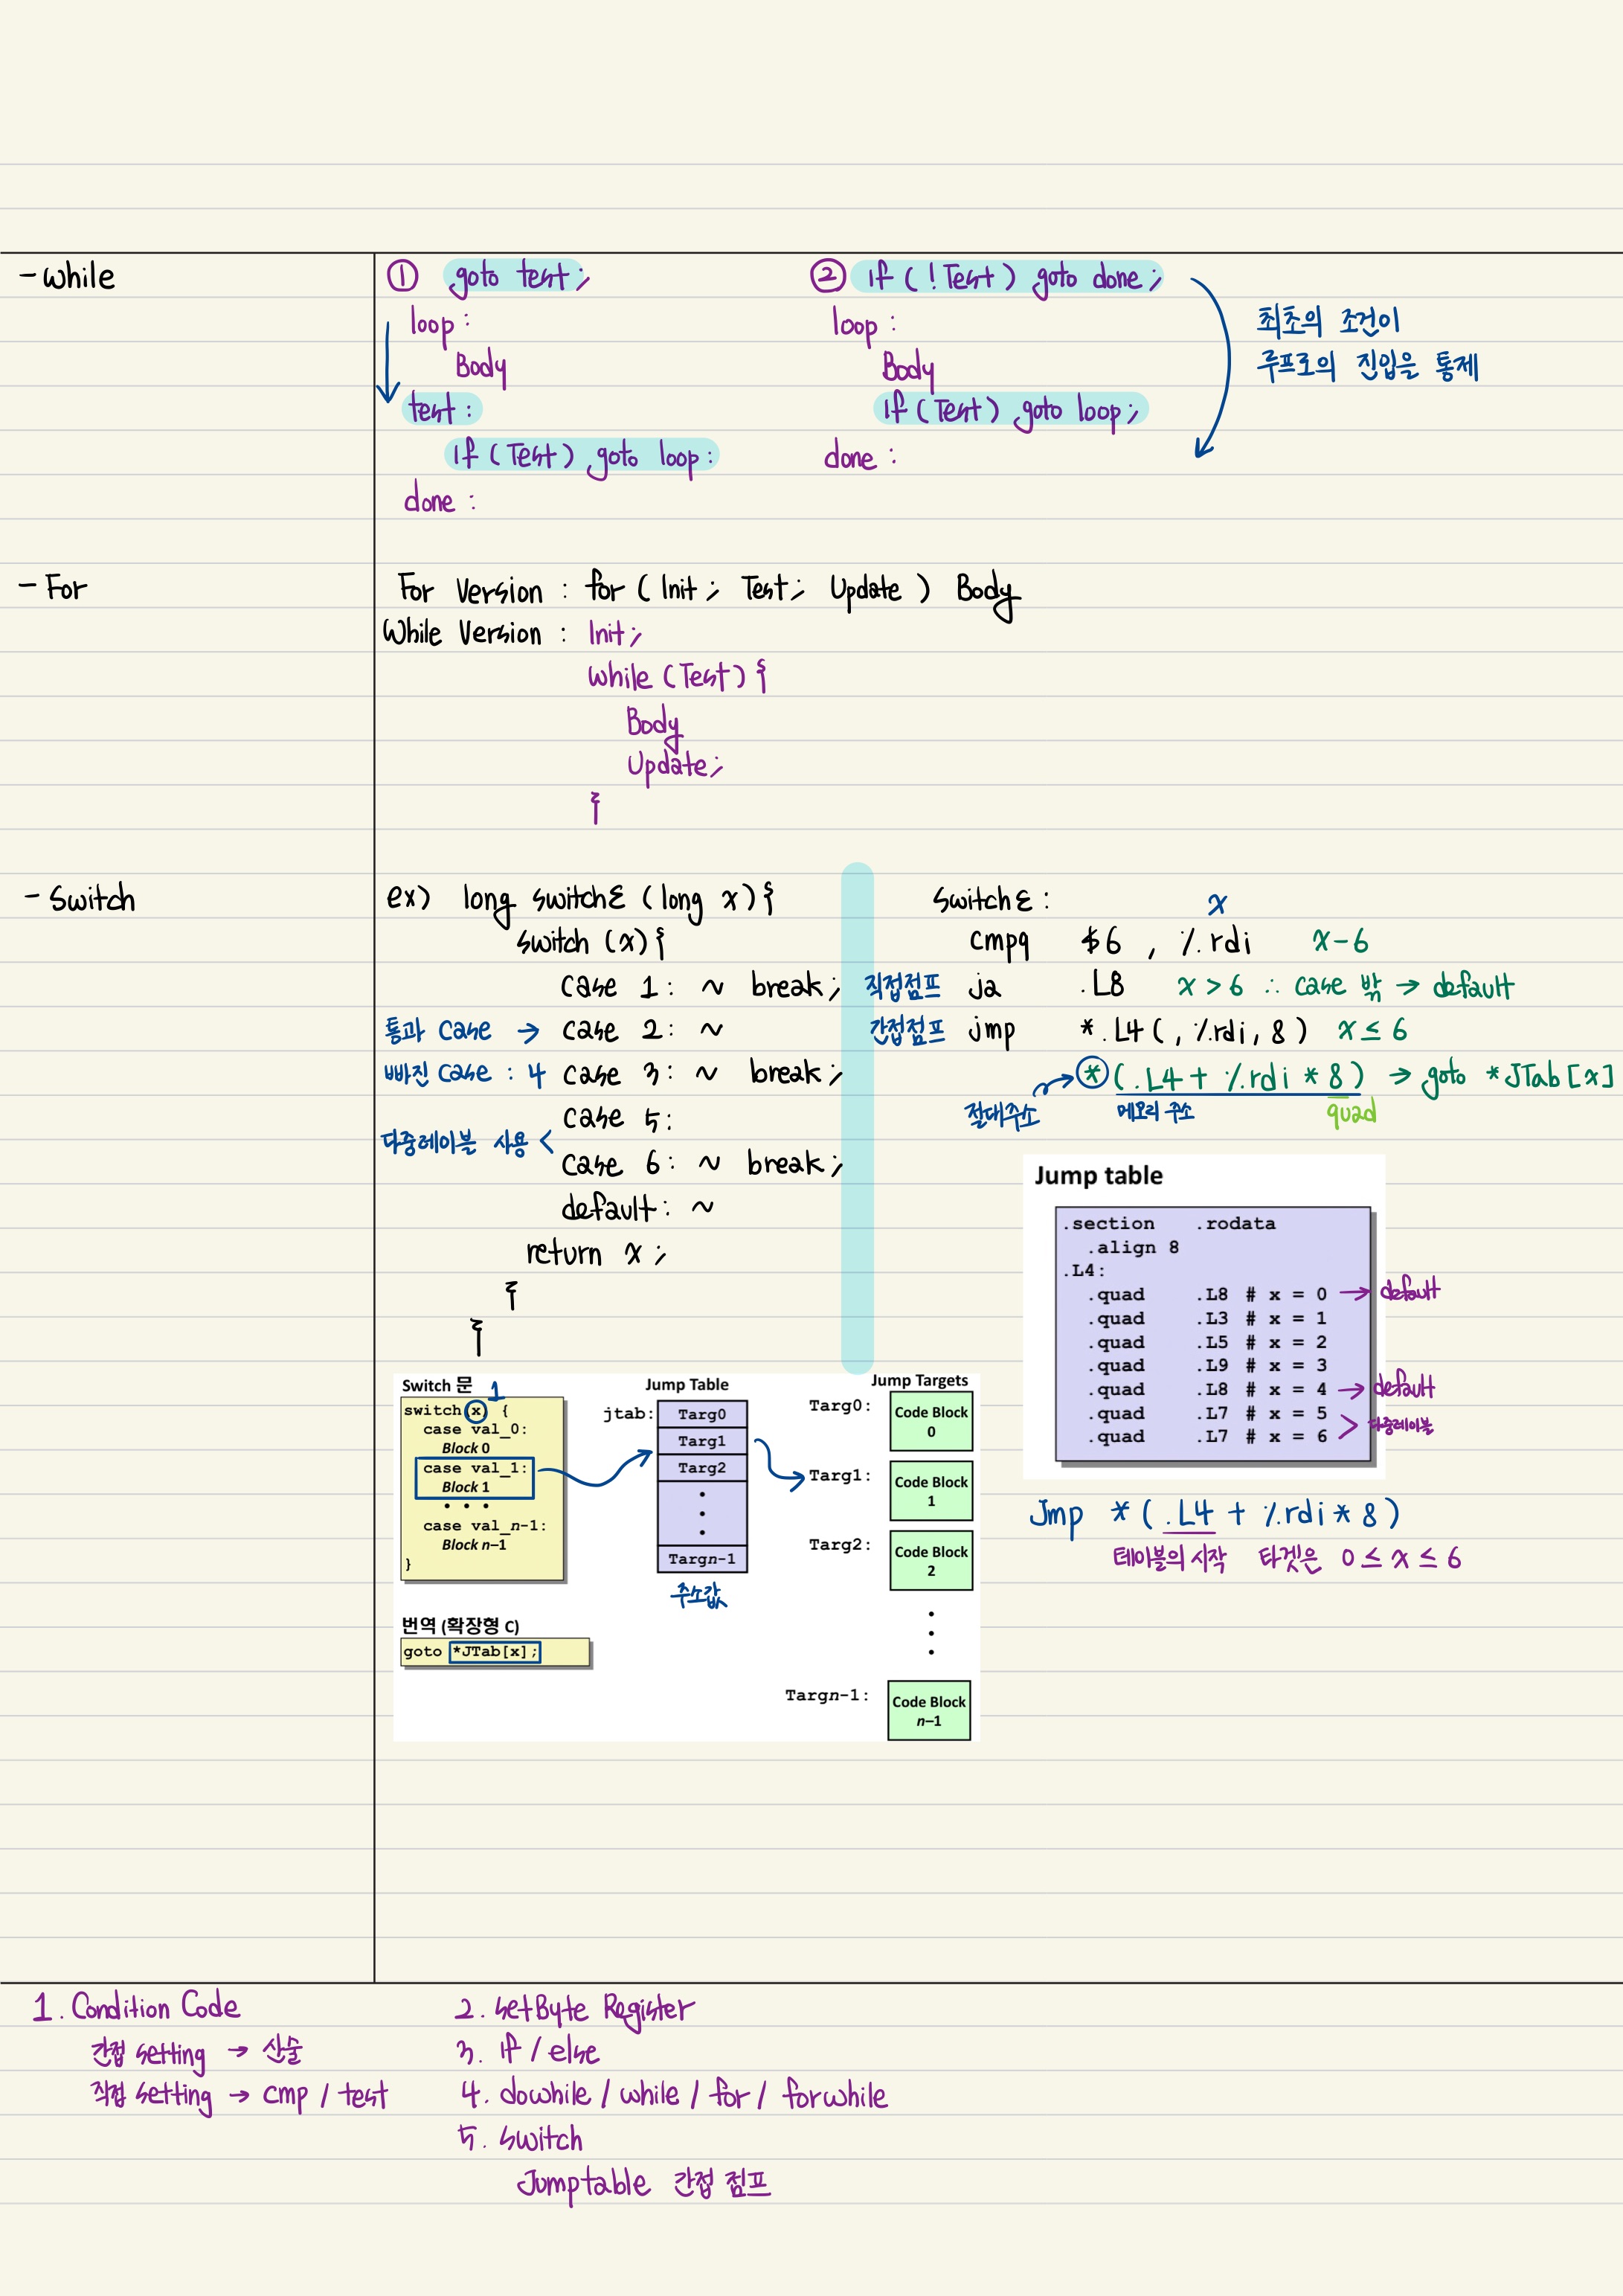 - While
① goto test;
loop :
Body
test :
if (Test) goto loop :
done :
② if ( ! Test ) goto done ;
loop :
Body
if (Test) goto loop ;
done :
최초의 조건이
루프로의 진입을 통제
- For
For Version : for ( Init ; Test ; Update ) Body
While Version : Init ;
While (Test) {
Body
Update ;
}
- Switch
ex) long switchε (long x) {
switch (x) {
case 1 : ~ break ;
통과 case → case 2 : ~
빠진 case : 4 case 3 : ~ break ;
case 5 :
다중레이블 사용 <
case 6 : ~ break ;
default : ~
return x ;
}
}
switchε :
x
cmpq $6 , %rdi x-6
직접점프 ja .L8 x > 6 ∴ case 밖 → default
간접점프 jmp *.L4( , %rdi, 8 ) x ≤ 6
* ( .L4 + %rdi * 8 ) → goto *JTab [x]
절대주소 메모리 주소 quad
Jump table
.section .rodata
.align 8
.L4:
.quad .L8 # x = 0 → default
.quad .L3 # x = 1
.quad .L5 # x = 2
.quad .L9 # x = 3
.quad .L8 # x = 4 → default
.quad .L7 # x = 5
.quad .L7 # x = 6 > 다중레이블
Jmp * ( .L4 + %rdi * 8 )
테이블의 시작 타겟은 0 ≤ x ≤ 6
Switch 문
1
switch(x) {
case val_0:
Block 0
case val_1:
Block 1
• • •
case val_n-1:
Block n–1
}
번역 (확장형 C)
goto *JTab[x];
Jump Table
jtab:
Targ0
Targ1
Targ2
Targn-1
주소값
Jump Targets
Targ0: Code Block
0
Targ1: Code Block
1
Targ2: Code Block
2
Targn-1: Code Block
n–1
1. Condition Code
간접 setting → 산술
직접 setting → cmp / test
2. setByte Register
3. if / else
4. dowhile / while / for / forwhile
5. switch
Jumptable 간접 점프